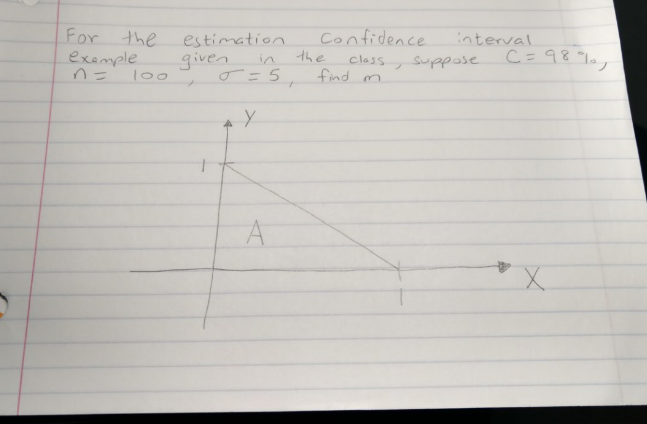 For the estimation Confidence interval
example given in the class, suppose C = 98%,
n = 100, σ = 5, find m
Y
1
A
X
1